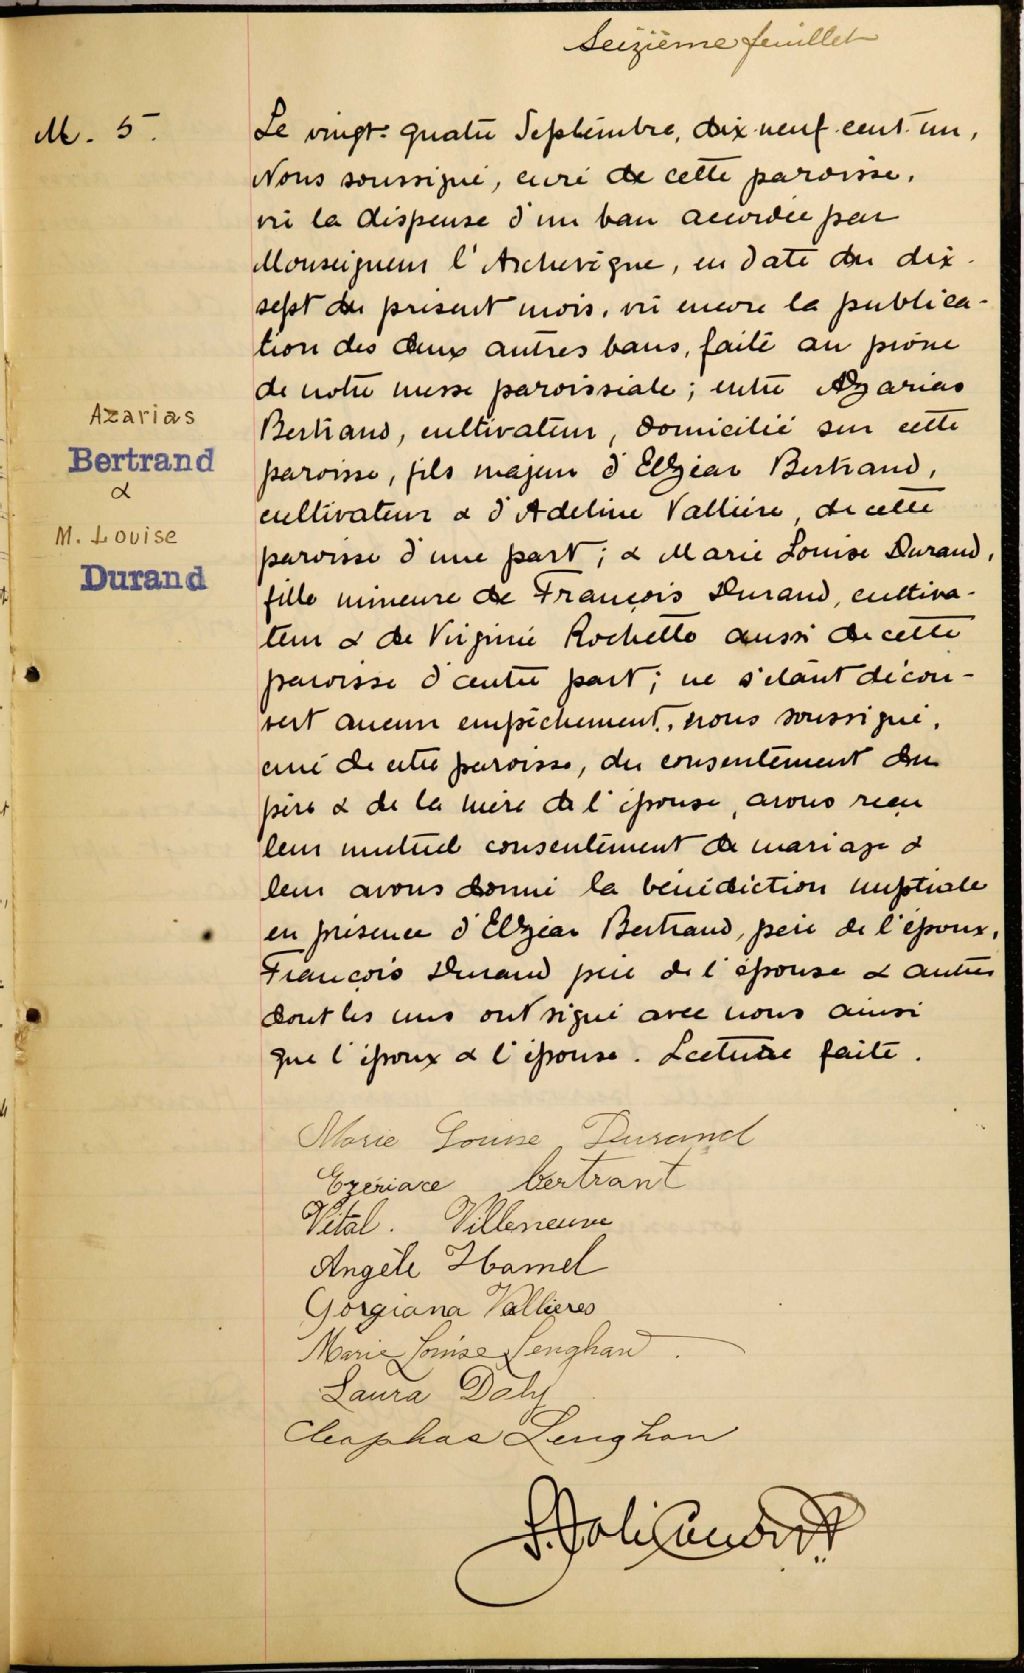 Seizième feuillet
M. 5.
Le vingt-quatre Septembre, dix-neuf-cent-un,
Nous soussigné, curé de cette paroisse,
vu la dispense d'un ban accordée par
Monseigneur l'Archevêque, en date du dix-
sept du présent mois, vu encore la publica-
tion des deux autres bans, faite au prône
de notre messe paroissiale; entre Azarias
Bertrand, cultivateur, domicilié sur cette
paroisse, fils majeur d'Elzéar Bertrand,
cultivateur & d'Adeline Vallière, de cette
paroisse d'une part; & Marie Louise Durand,
fille mineure de François Durand, cultiva-
teur & de Virginie Rochette aussi de cette
paroisse d'autre part; ne s'étant décou-
vert aucun empêchement, nous soussigné,
curé de cette paroisse, du consentement du
père & de la mère de l'épouse, avons reçu
leur mutuel consentement de mariage &
leur avons donné la bénédiction nuptiale
en présence d'Elzéar Bertrand, père de l'époux,
François Durand père de l'épouse & autres
dont les uns ont signé avec nous ainsi
que l'époux & l'épouse. Lecture faite.
Azarias
Bertrand
&
M. Louise
Durand
Marie Louise Durand
Ezériace bertrant
Vital. Villeneuve
Angèle Hamel
Gorgiana Vallieres
Marie Louise Lenghan.
Laura Doly
Cleophas Lenghan